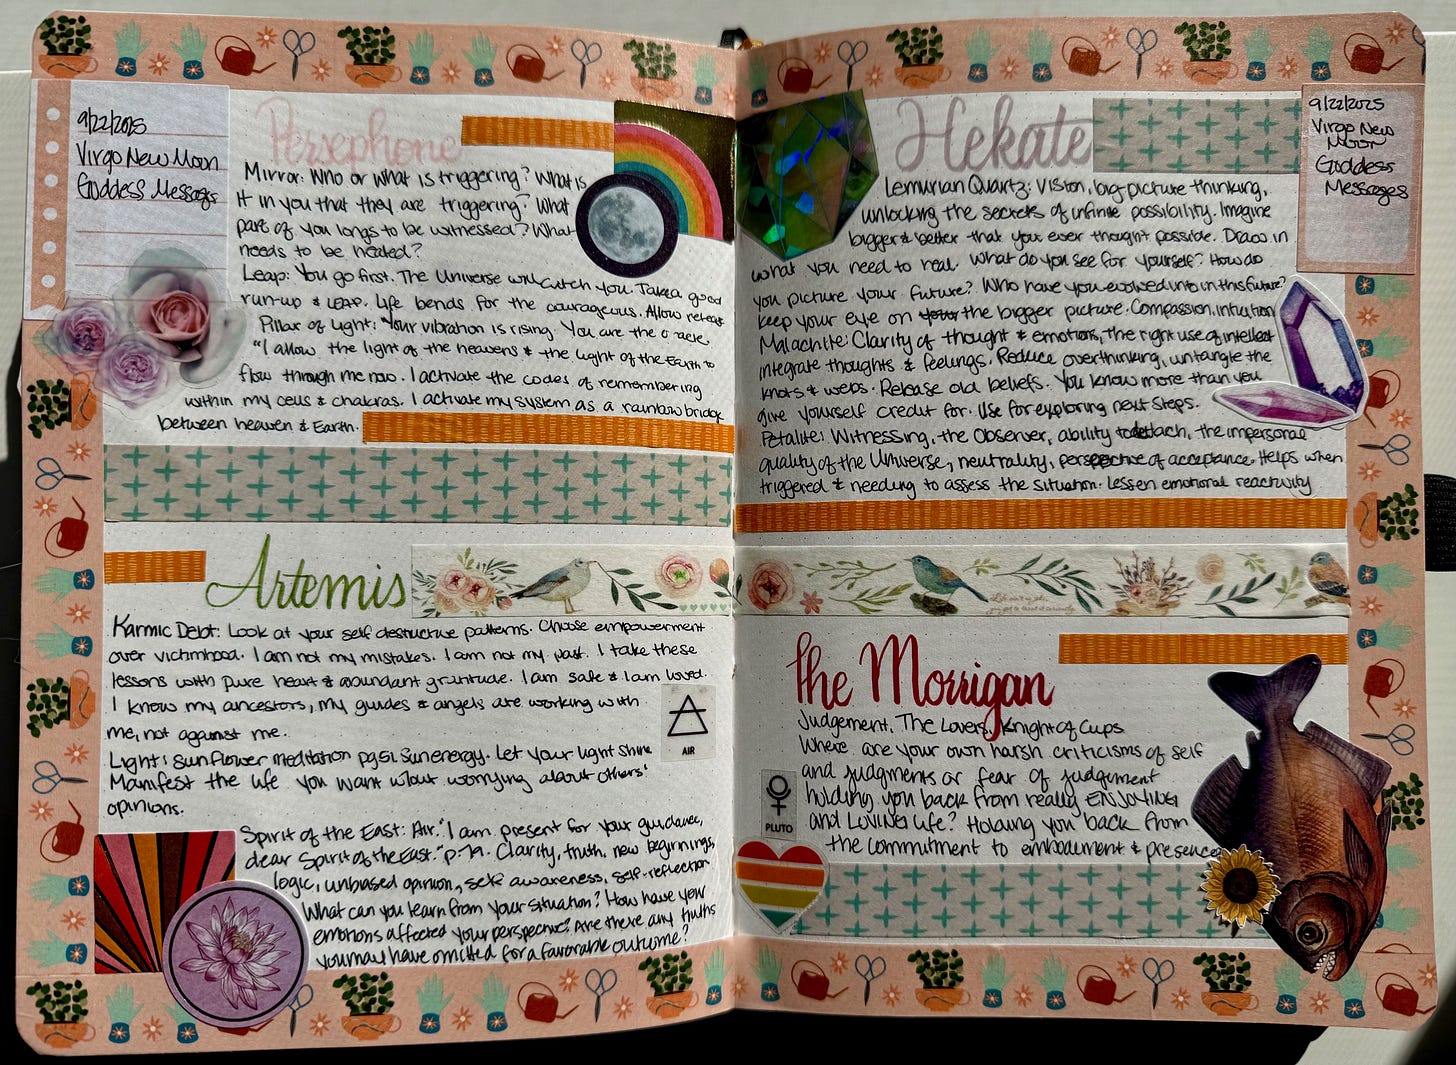 9/22/2025
Virgo New Moon
Goddess Messages
Persephone
Mirror: Who or what is triggering? What is
it in you that they are triggering? What
part of you longs to be witnessed? What
needs to be healed?
Leap: You go first. The Universe will catch you. Take a good
run-up & LEAP. Life bends for the courageous. Allow retreat
Pillar of Light: Your vibration is rising. You are the oracle.
"I allow the light of the heavens & the light of the Earth to
flow through me now. I activate the codes of remembering
within my cells & chakras. I activate my system as a rainbow bridge
between heaven & Earth.
Artemis
Karmic Debt: Look at your self destructive patterns. Choose empowerment
over victimhood. I am not my mistakes. I am not my past. I take these
lessons with pure heart & abundant gratitude. I am safe & I am loved.
I know my ancestors, my guides & angels are working with
me, not against me.
AIR
Light: Sunflower meditation pg 51. Sun energy. Let your light shine
Manifest the life you want w/out worrying about others'
opinions.
Spirit of the East: Air. "I am present for your guidance,
dear Spirit of the East." p. 79. Clarity, truth, new beginnings,
logic, unbiased opinion, self awareness, self-reflection
What can you learn from your situation? How have your
emotions affected your perspective? Are there any truths
you may have omitted for a favorable outcome?
Hekate
9/22/2025
Virgo New
Moon
Goddess
Messages
Lemurian Quartz: Vision, big-picture thinking,
unlocking the secrets of infinite possibility. Imagine
bigger & better that you ever thought possible. Draw in
what you need to real. What do you see for yourself? How do
you picture your future? Who have you evolved into in this future?
Keep your eye on your the bigger picture. Compassion, intuition
Malachite: Clarity of thought & emotions, The right use of intellect
integrate thoughts & feelings. Reduce overthinking, untangle the
knots & webs. Release old beliefs. You know more than you
give yourself credit for. Use for exploring next steps.
Petalite: Witnessing, the Observer, ability to detach, the impersonal
quality of the Universe, neutrality, perspective of acceptance. Helps when
triggered & needing to assess the situation. Lessen emotional reactivity
The Morrigan
Judgement, The Lovers, Knight of Cups
Where are your own harsh criticisms of self
and judgments or fear of judgement
holding you back from really ENJOYING
and LOVING life? Holding you back from
the commitment to embodiment & presence
PLUTO